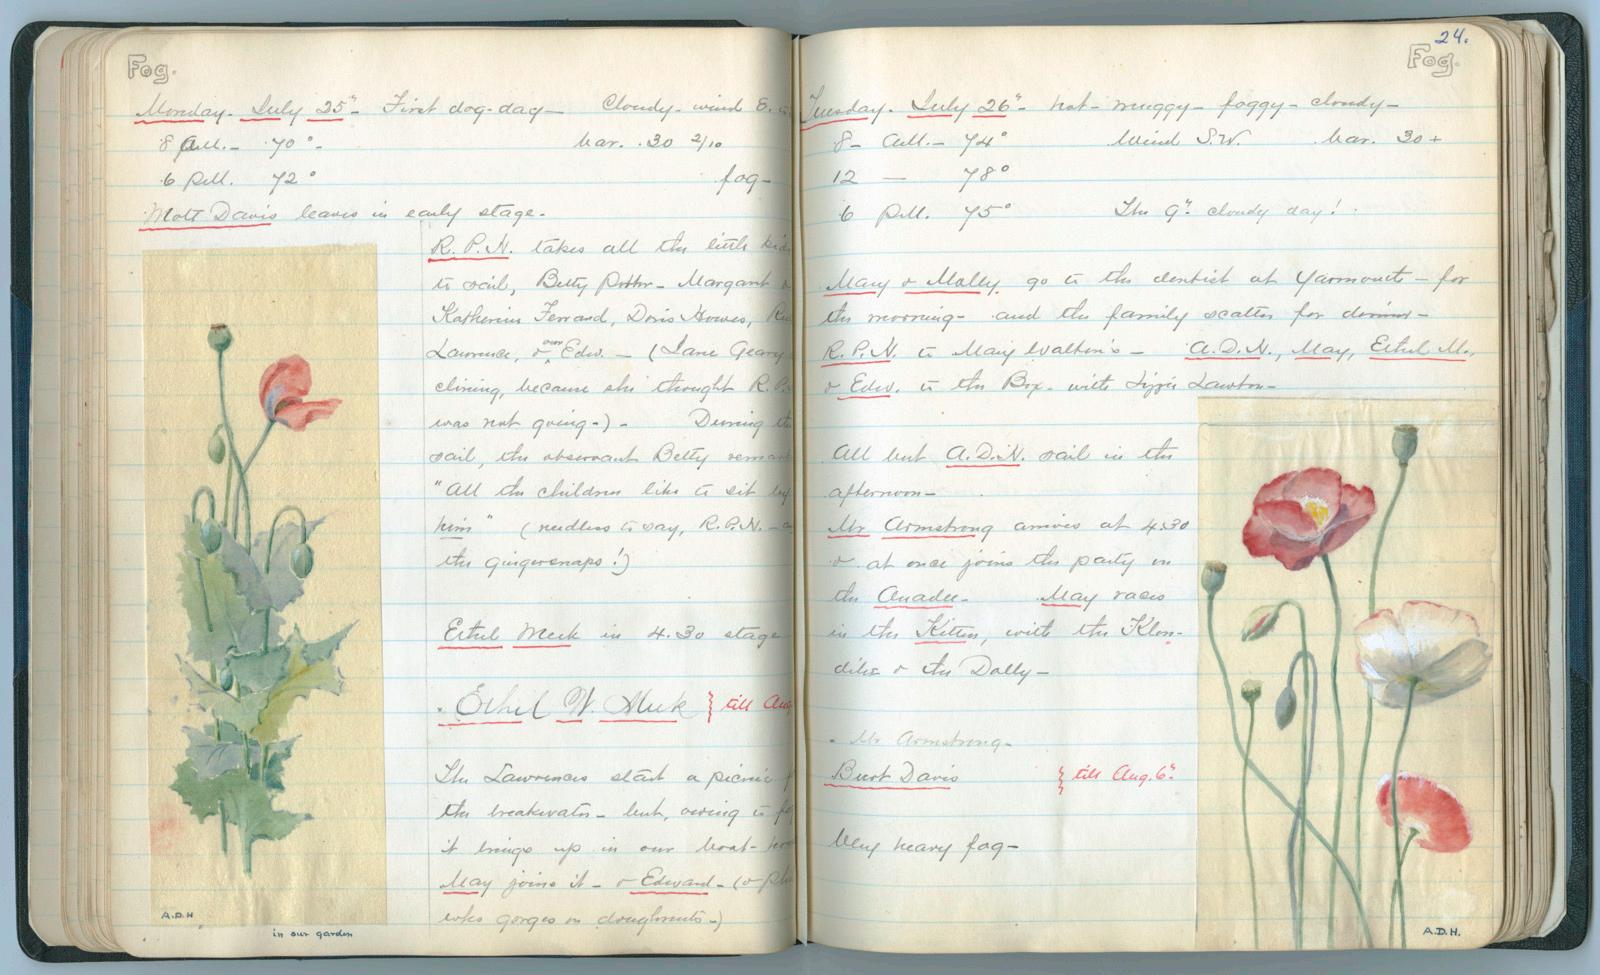 Fog.
Monday. July 25" - First dog-day - Cloudy - wind S.
8 A.M. - 70° - bar. 30 2/10
6 P.M. 72° fog -
Mott Davis leaves in early stage.
R.P.N. takes all the little
to sail, Betty - Margaret &
Katherine Ferrand, Doris Howes,
Lawrence, & our Edw. - (Jane Geary
clining, because she thought R.P.
was not going -) - During
sail, the observant Betty
"All the children like to sit by
him" (needless to say, R.P.N. -
the gingersnaps!)
Ethel Meek in 4.30 stage
Ethel W. Meek } till Aug
The Lawrences start a picnic
the breakwater - but, owing to
it brings up in our boat-
May joins it - & Edward - (&
who gorges on doughnuts -)
A.D.H
in our garden
24.
Fog.
Tuesday. July 26" - hot - muggy - foggy - cloudy -
8 - A.M. - 74° Wind S.W. bar. 30 +
12 — 78°
6 P.M. 75° The 9" cloudy day!
Mary & Molly go to the dentist at Yarmouth - for
the morning - and the family scatter for dinner -
R.P.N. to Mary Walton's - A.D.N., May, Ethel M.,
& Edw. to the Box - with Lizzie Lawton -
All but A.D.N. sail in the
afternoon -
Mr Armstrong arrives at 4.30
& at once joins the party in
the - May races
in the Kitten, with the Klon-
dike & the Dolly -
Mr Armstrong -
Burt Davis } till Aug. 6"
Very heavy fog -
A.D.H.